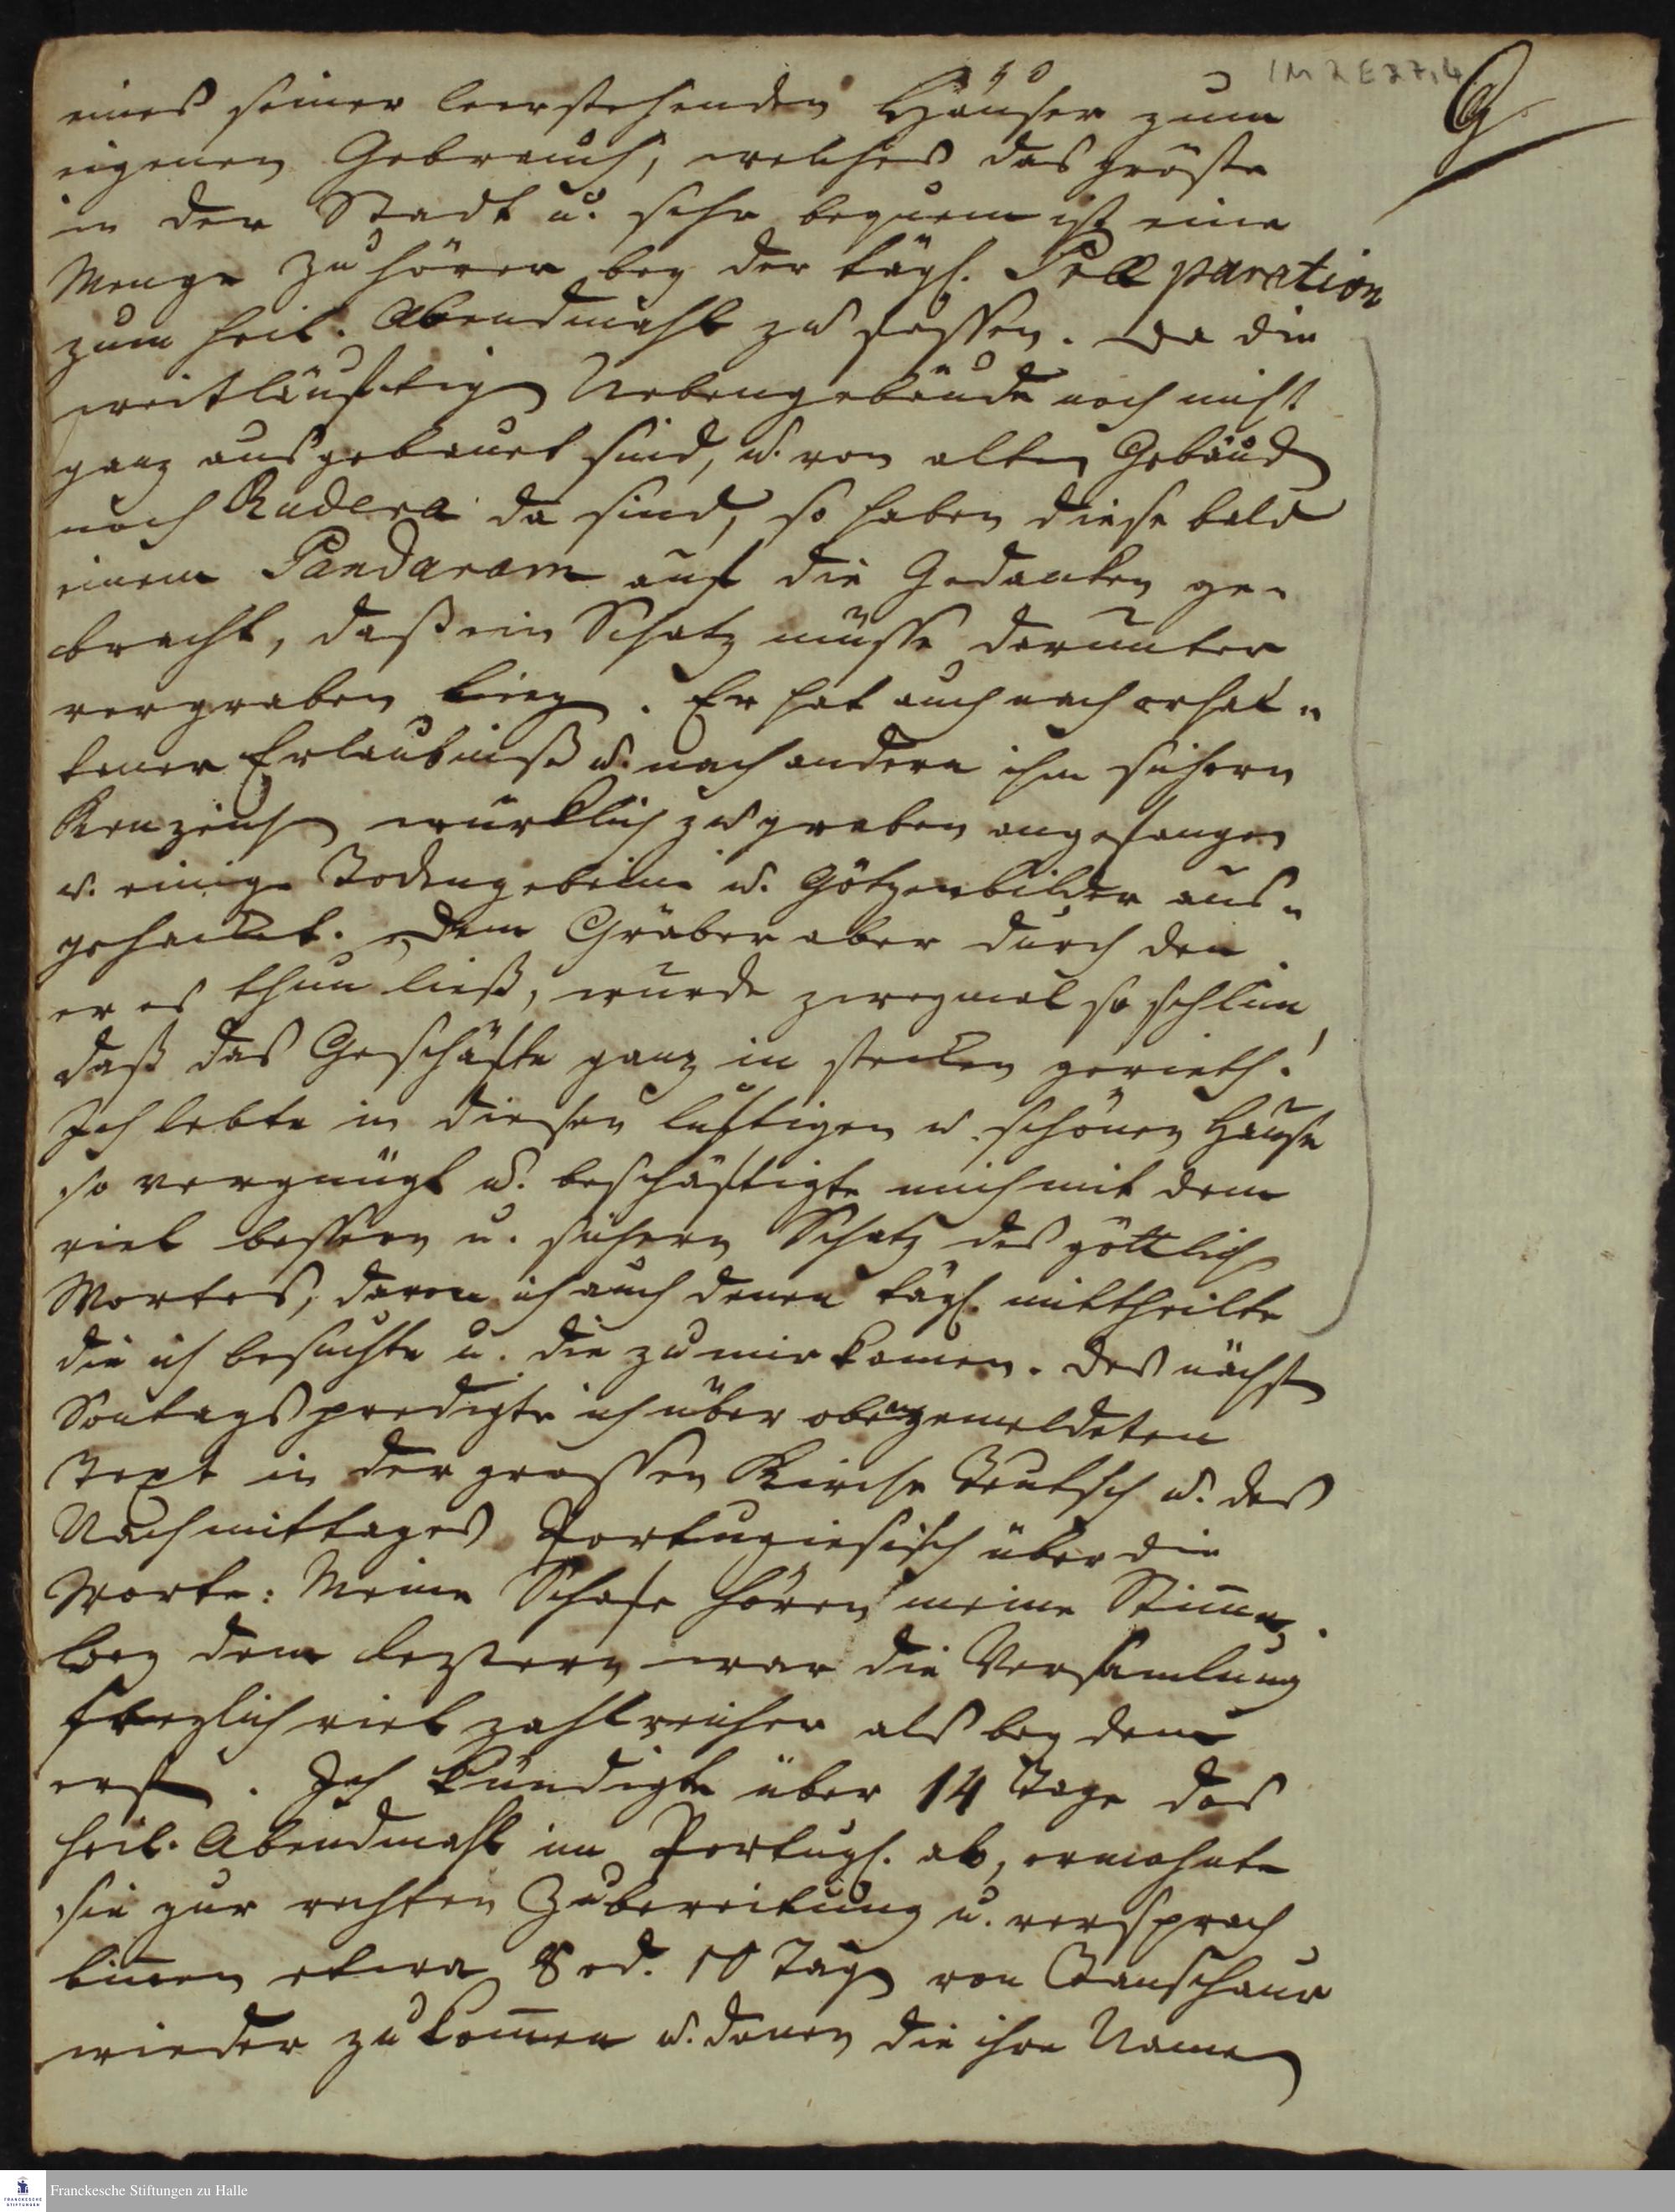 1M 2 E 27,4
G
eines seiner leerstehenden Häuser zum
eigenen Gebrauch, welches das gröste
in der Stadt u. sehr bequem ist eine
Menge Zuhörer bey der tägl. Præparation
zum heil. Abendmahl zu fassen. Da die
weitläuftigen Nebengebäude noch nicht
ganz ausgebauet sind, u. von alten Gebäuden
noch Rudera da sind, so haben diese bald
einem Pandaram auf die Gedanken ge-
bracht, daß ein Schatz müsse darunter
vergraben liegen. Er hat auch nach erhal-
tener Erlaubniß u. nach andern ihm sichern
Kenzeichen würklich zu graben angefangen
u. einige Todengebeine u. Götzenbilder aus-
gehackt. Dem Gräber aber durch den
er es thun ließ, wurde zweymal so schlim
daß das Geschäfte ganz in stecken gerieth.
Ich lebte in diesen luftigen u. schönen Hause
so vergnügt u. beschäftigte mich mit dem
viel bessern u. sichern Schatz des göttlichen
Wortes, davon ich auch denen tägl. mittheilte
die ich besuchte u. die zu mir kamen. Des nächsten
Sontags predigte ich über obengemeldeten
Text in der grossen Kirche Teutsch u. des
Nachmittages Portugiesisch über die
Worte: Meine Schafe hören meine Stimme.
bey dem leztern war die Versamlung
freylich viel zahlreicher als bey dem
ersten. Ich kündigte über 14 Tage das
heil. Abendmahl im Portugs. ab, ermahnte
sie zur rechten Zubereitung u. versprach
binnen etwa 8 od. 10 Tagen von Tanschaur
wieder zu kommen u. denen die ihre Namen
Franckesche Stiftungen zu Halle